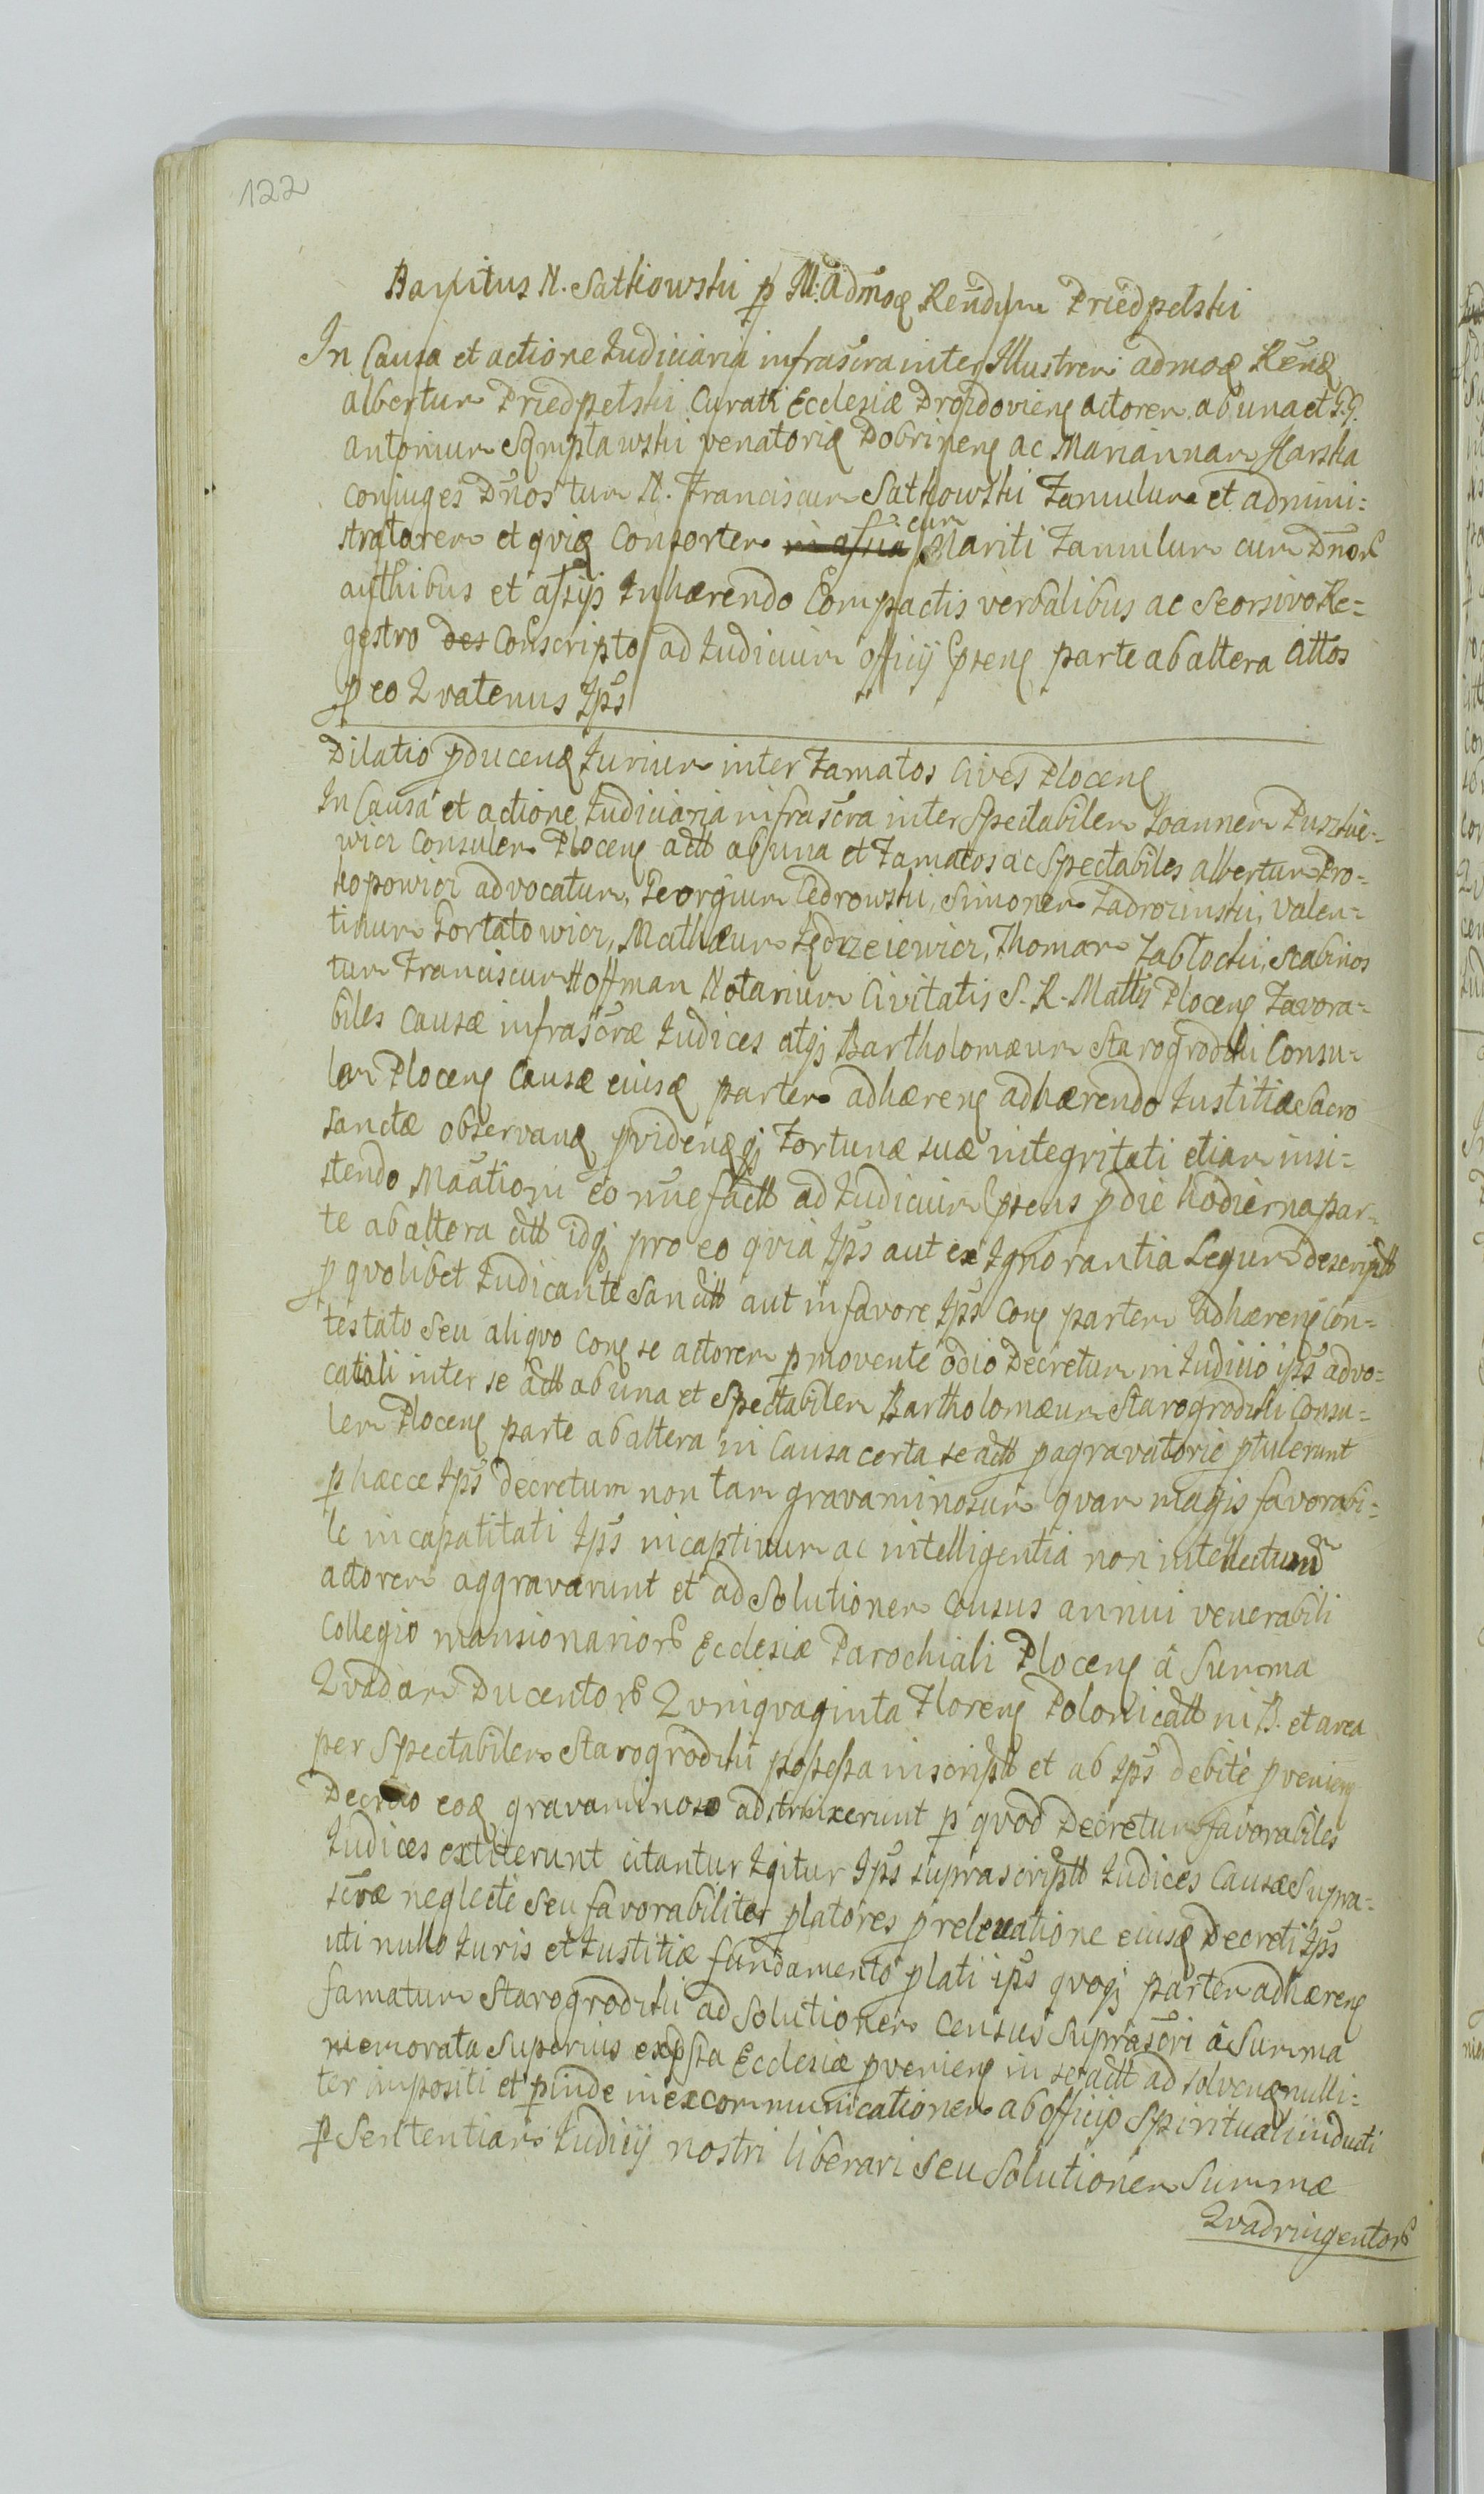 122
Banitus N. Sathowski p M: admoq Rendum Priedpelski
In Causa et actione Iudiciaria infrascra inter Illustrem admoq Renq
albertum Priedpelski Curati Ecclesiæ Drozdovienq actorem ab una et G. G.
antonium venatoriq Dobrinenq ac Mariannam Karska
conjuges Dnos tum N. Franciscum Sathowski Famulum et admini-
stratorem et qviq Consortem cum Mariti Famulum cum Dnor
authibus et assijs Inhærendo Compactis verbalibus ac Seorsivo Re-
gestro des Conscripto ad Iudicium officij Epsenq parte ab altera Cittos
p eo Qvatenus Ips
Dilatio pducenq Iurium inter Famatos Cives Plocenq
In Causa et actione Iudiciaria infrascra inter Spectabilem Ioannem Puszkie-
wicz Consulem Plocenq actt ab una et Famatos ac Spectabiles albertum Pro-
kopowicz advocatum, Georgium Cedrowski, Simonem Zadrozinski, Valen-
tinum Portatowicz, Mathæum Iędrzeiewicz, Thomam Zabłocki, Scabinos
tum Franciscum Hoffman Notarium Civitatis S. R. Mattis Plocenq Favora-
biles Causæ infrascræ Iudices atqj Bartholomæum Starogrodzki Consu-
lem Plocenq Causæ eiusq partem adhærenq adhærendo Iustitiæ Sacro
sanctæ observanq pvidenqqj Fortunæ suæ integritati etiam insi-
stendo Maationi eo nne factt ad Iudicium Epsens p die hodierna par-
te ab altera citt idqj pro eo qvia Ips aut ex Ignorantia Legum descriptt
p qvolibet Iudicante Sancitt aut in favore Ips Conq partem adhærenq Con-
testato Seu aliqvo Conq se actorem pmovente odio Decretum in Iudicio ips advo-
catali inter se actt ab una et Spectabilem Bartholomæum Starogrodzki Consu-
lem Plocenq parte ab altera in Causa certa se actt pagravatorie ptulerunt
p hæcce Ips decretum non tam gravaminosum qvam magis favorabi-
le incapatitati Ips incaptivum ac intelligentia non intellectum
actorem aggravarunt et ad Solutionem Census annui venerabili
Collegio mansionarior Ecclesiæ Parochiali Plocenq á Summa
Qvadam Ducentor Qvinqvaginta Florenq Polonicatt in B. et area
per Spectabilem Starogrodzki possessa inscriptt et ab Ips debite pvenienq
Decreto eoq gravaminoso adstrinxerunt p qvod Decretum favorabiles
Iudices extiterunt citantur Igitur Ips suprascriptt Iudices Causæ Supra-
scræ neglecte Seu favorabiliter platores p relevatione eiusq Decreti Ips
uti nullo Iuris et Iustitiæ fundamento plati ips qvoqj partem adhærenq
famatum Starogrodzki ad Solutionem Census Suprascri á Summa
memorata Superius expssa Ecclesiæ pvenienq in se actt ad solvenq nulli-
ter impositi et pinde in excommunicationem ab officio Spirituali inducti
p Sententiam Iudicij nostri liberari Seu Solutionem Summæ
Qvadringentor